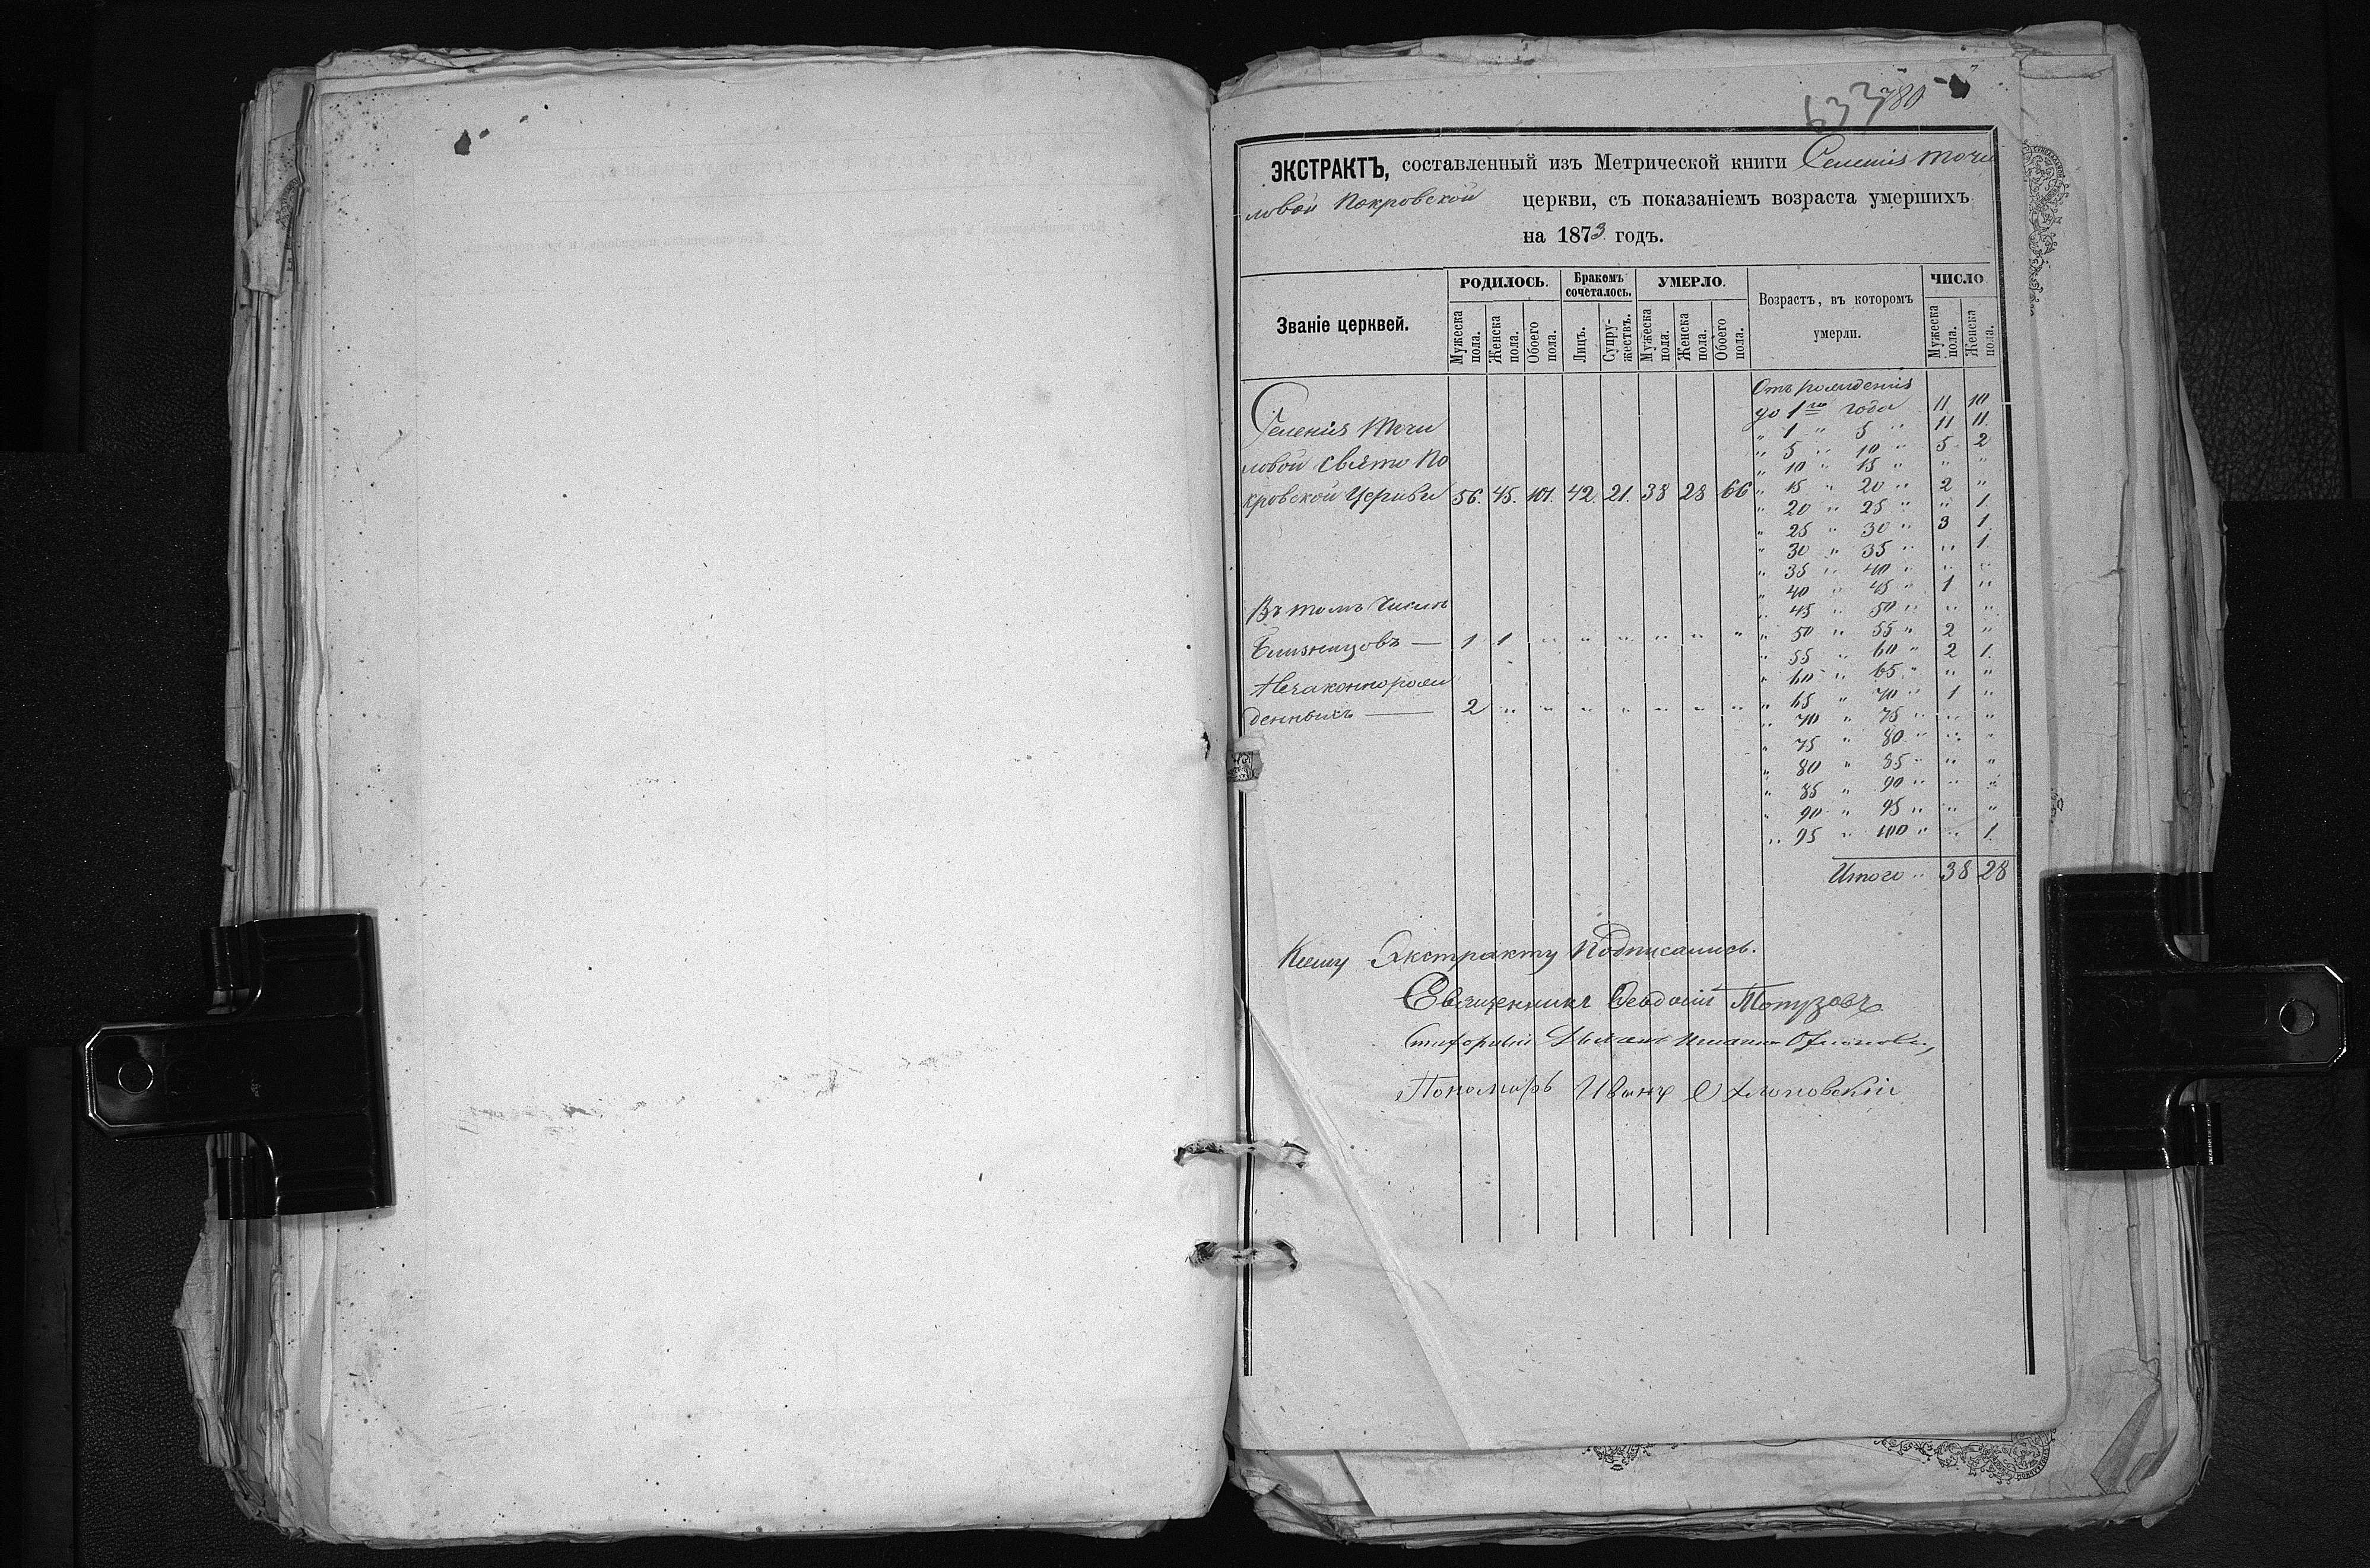 633 780
ЭКСТРАКТЪ, составленный изъ Метрической книги Селенія Мочи
ловой Покровской церкви, съ показаніемъ возраста умершихъ
на 1873 годъ.
Званіе церквей. РОДИЛОСЬ. Бракомъ сочеталось. УМЕРЛО. Возрастъ, въ которомъ умерли. ЧИСЛО
Мужеска пола. Женска пола. Обоего пола. Лицъ. Супружествъ. Мужеска пола. Женска пола. Обоего пола. Мужеска пола. Женска пола.
Отъ рожденія
до 1го года 11 10
Селенія Мочи
" 1 " 5 " 11 11.
ловой Свято По
" 5 " 10 " 5 2
" 10 " 15 " " "
кровской Церкви 56. 45. 101. 42. 21. 38 28 66
" 15 " 20 " 2 "
" 20 " 25 " " 1.
" 25 " 30 " 3 1.
" 30 " 35 " " 1.
" 35 " 40 " " "
" 40 " 45 " 1 "
Въ томъ Числѣ
" 45 " 50 " " "
Близнецовъ — 1 1 " " " " " "
" 50 " 55 " 2 "
" 55 " 60 " 2 1.
Незаконнорож
" 60 " 65 " " "
денныхъ — 2 " " " " " " "
" 65 " 70 " 1 "
" 70 " 75 " " "
" 75 " 80 " " "
" 80 " 85 " " "
" 85 " 90 " " "
" 90 " 95 " " "
" 95 " 100 " " 1.
Итого " 38 28
Ксему Экстракту Подписались.
Священникъ Феодосій Топузовъ
Ѳ Пономарь Иванъ